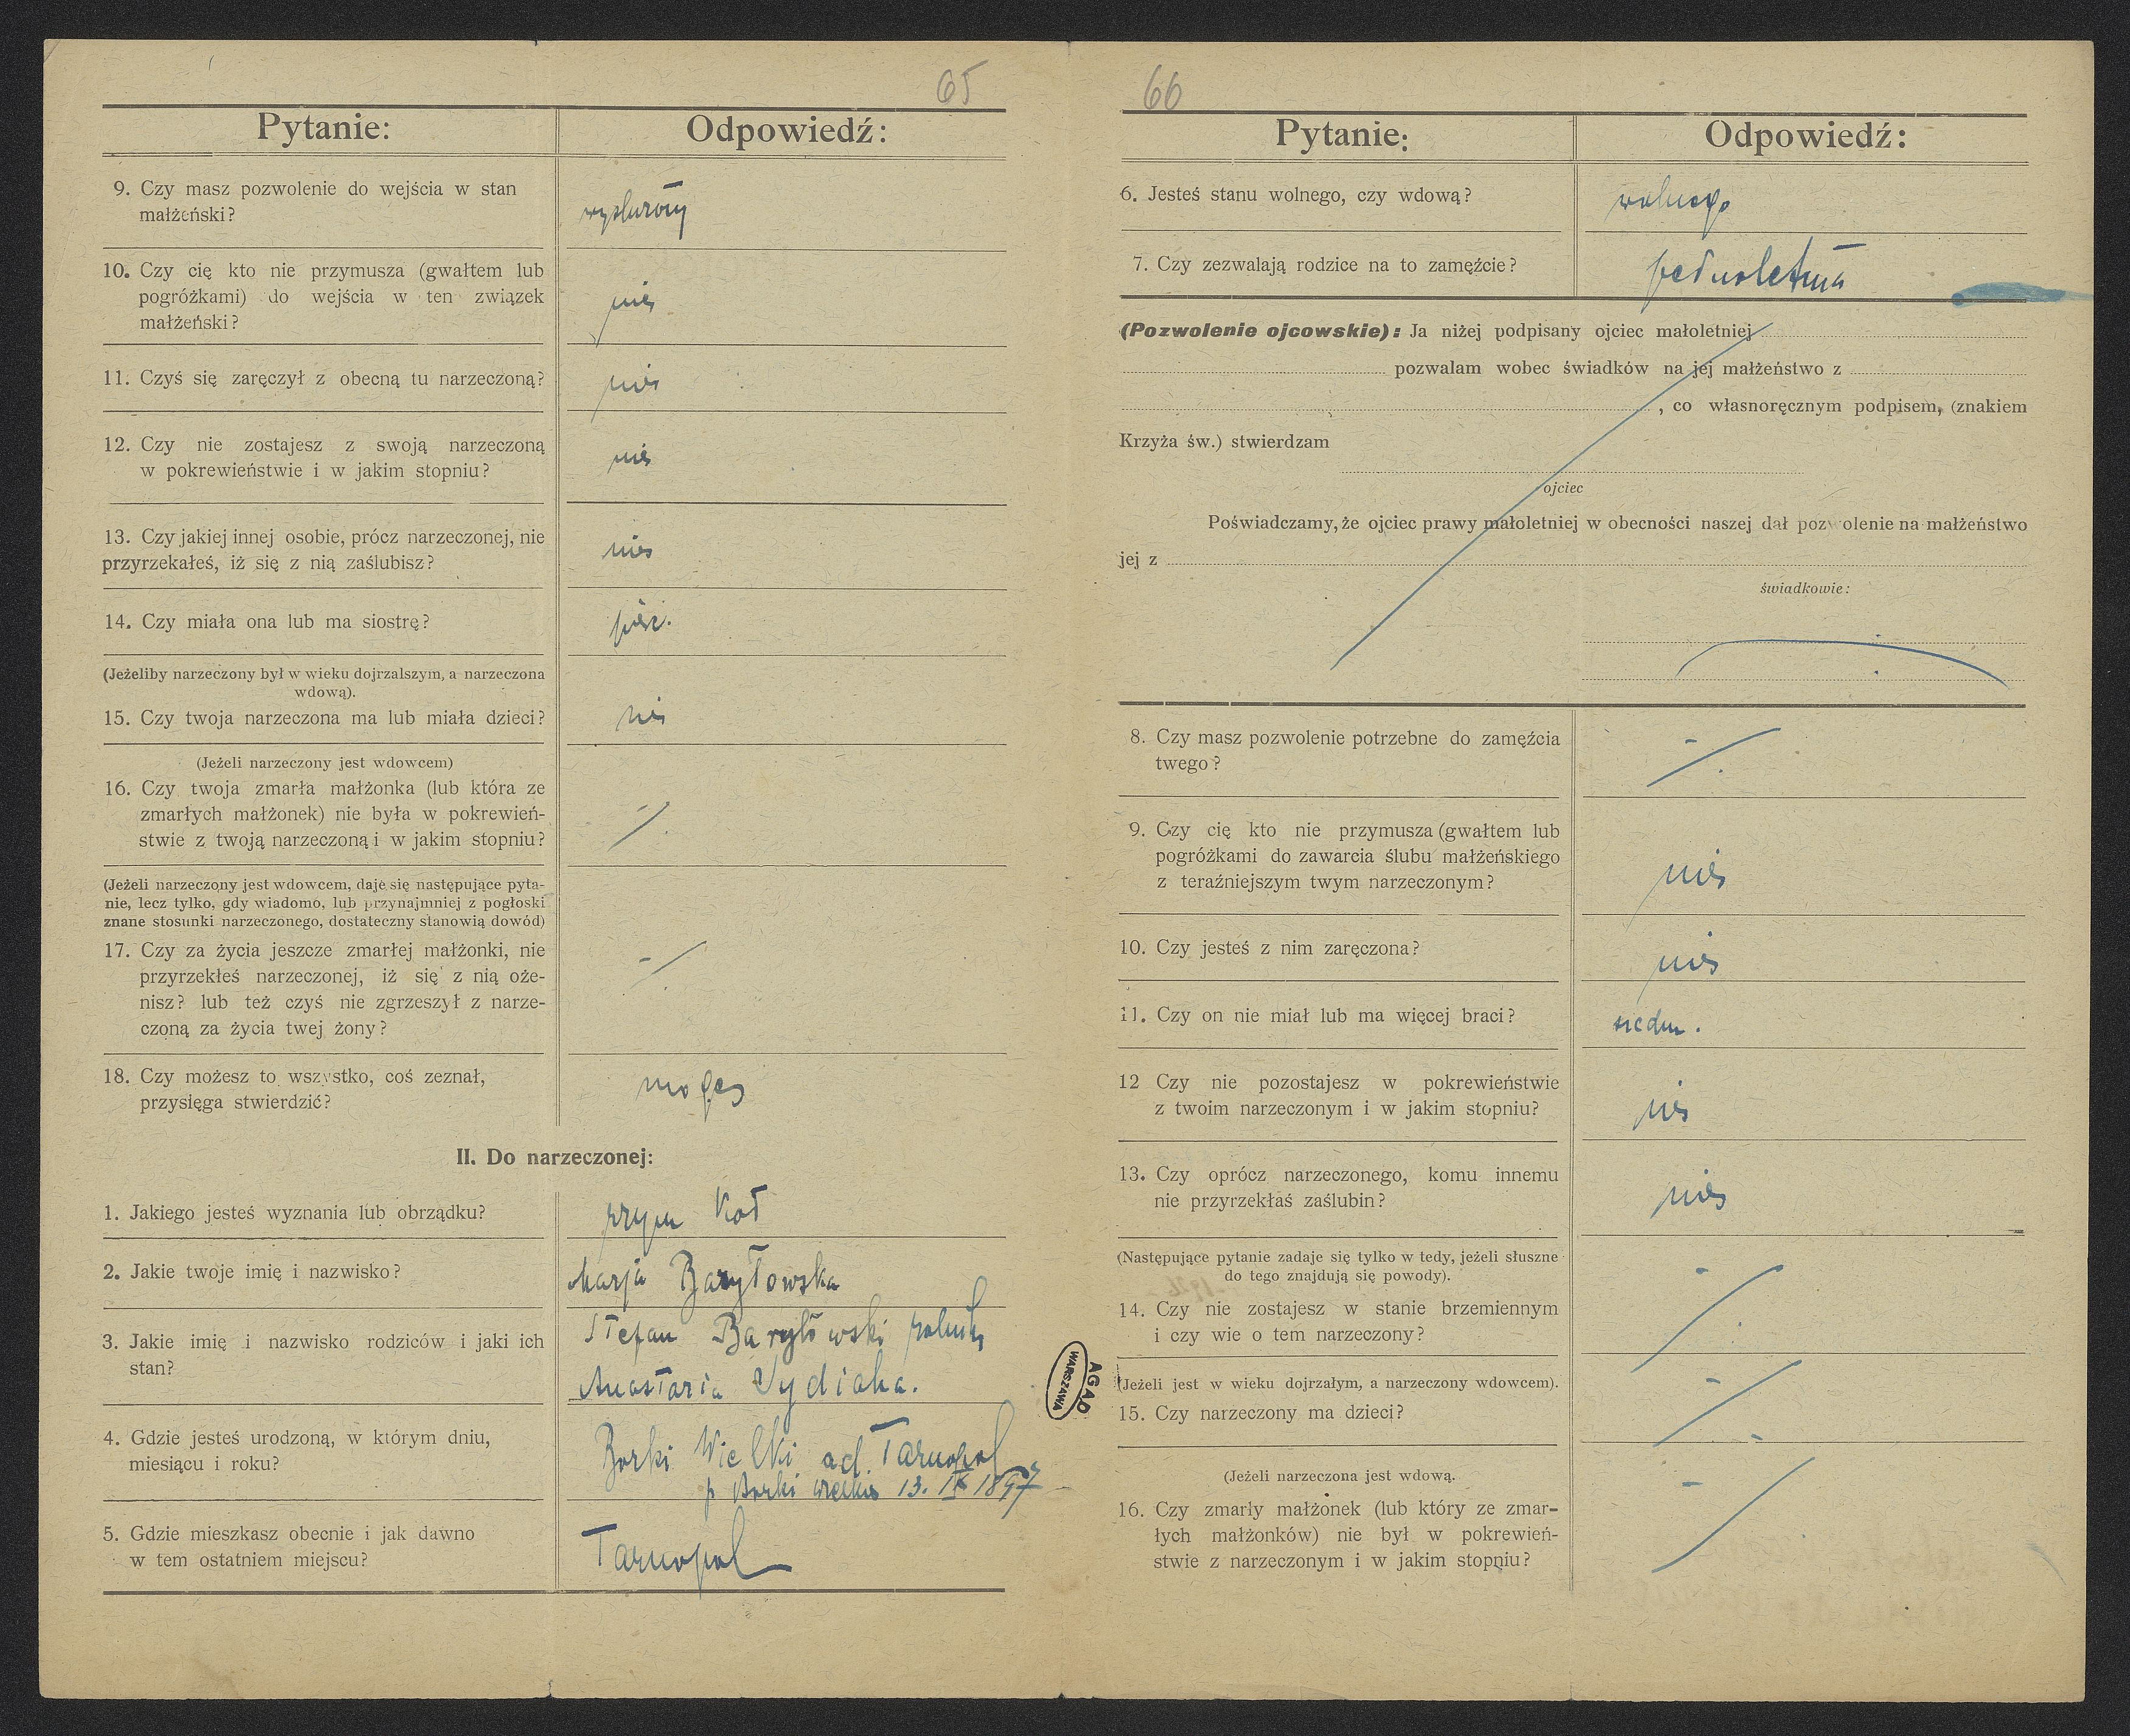 65
Pytanie:
Odpowiedź:
9. Czy masz pozwolenie do wejścia w stan
małżeński?
wysłużony
10. Czy cię kto nie przymusza (gwałtem lub
pogróżkami) do wejścia w ten związek
małżeński?
nie
11. Czyś się zaręczył z obecną tu narzeczoną?
nie
12. Czy nie zostajesz z swoją narzeczoną
w pokrewieństwie i w jakim stopniu?
nie
13. Czy jakiej innej osobie, prócz narzeczonej, nie
przyrzekałeś, iż się z nią zaślubisz?
nie
14. Czy miała ona lub ma siostrę?
pięć.
(Jeżeliby narzeczony był w wieku dojrzalszym, a narzeczona
wdową).
15. Czy twoja narzeczona ma lub miała dzieci?
nie
(Jeżeli narzeczony jest wdowcem)
16. Czy twoja zmarła małżonka (lub która ze
zmarłych małżonek) nie była w pokrewień-
stwie z twoją narzeczoną i w jakim stopniu?
(Jeżeli narzeczony jest wdowcem, daje się następujące pyta-
nie, lecz tylko, gdy wiadomo, lub przynajmniej z pogłoski
znane stosunki narzeczonego, dostateczny stanowią dowód)
17. Czy za życia jeszcze zmarłej małżonki, nie
przyrzekłeś narzeczonej, iż się z nią oże-
nisz? lub też czyś nie zgrzeszył z narze-
czoną za życia twej żony?
18. Czy możesz to wszystko, coś zeznał,
przysięga stwierdzić?
mogę
II. Do narzeczonej:
1. Jakiego jesteś wyznania lub obrządku?
rzym Kat
2. Jakie twoje imię i nazwisko?
Marja Baryłowska
3. Jakie imię i nazwisko rodziców i jaki ich
stan?
Stefan Baryłowski rolnik
Anastazia
4. Gdzie jesteś urodzoną, w którym dniu,
miesiącu i roku?
Borki Wielki ad. Tarnopol
p Borki wielkie 13. IX 1897
5. Gdzie mieszkasz obecnie i jak dawno
w tem ostatniem miejscu?
Tarnopol
AGAD
WARSZAWA
66
Pytanie:
Odpowiedź:
6. Jesteś stanu wolnego, czy wdową?
wolnego
7. Czy zezwalają rodzice na to zamęźcie?
pełnoletnia
(Pozwolenie ojcowskie): Ja niżej podpisany ojciec małoletniej
pozwalam wobec świadków na jej małżeństwo z
, co własnoręcznym podpisem, (znakiem
Krzyża św.) stwierdzam
ojciec
Poświadczamy, że ojciec prawy małoletniej w obecności naszej dał pozwolenie na małżeństwo
jej z
świadkowie:
8. Czy masz pozwolenie potrzebne do zamęźcia
twego?
9. Czy cię kto nie przymusza (gwałtem lub
pogróżkami do zawarcia ślubu małżeńskiego
z teraźniejszym twym narzeczonym?
nie
10. Czy jesteś z nim zaręczona?
nie
11. Czy on nie miał lub ma więcej braci?
siedm.
12 Czy nie pozostajesz w pokrewieństwie
z twoim narzeczonym i w jakim stopniu?
nie
13. Czy oprócz narzeczonego, komu innemu
nie przyrzekłaś zaślubin?
nie
(Następujące pytanie zadaje się tylko w tedy, jeżeli słuszne
do tego znajdują się powody).
14. Czy nie zostajesz w stanie brzemiennym
i czy wie o tem narzeczony?
(Jeżeli jest w wieku dojrzałym, a narzeczony wdowcem).
15. Czy narzeczony ma dzieci?
(Jeżeli narzeczona jest wdową.
16. Czy zmarły małżonek (lub który ze zmar-
łych małżonków) nie był w pokrewień-
stwie z narzeczonym i w jakim stopniu?